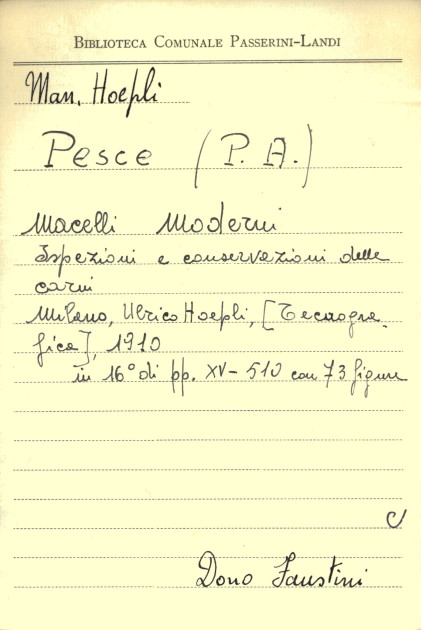 BIBLIOTECA COMUNALE PASSERINI-LANDI
Man. Hoepli
Pesce (P. A.)
Macelli Moderni
Ispezioni e conservazioni delle
carni
Milano, Ulrico Hoepli, [Tecnogra-
fica], 1910
in 16° di pp. XV-510 con 73 figure
C
Dono Faustini